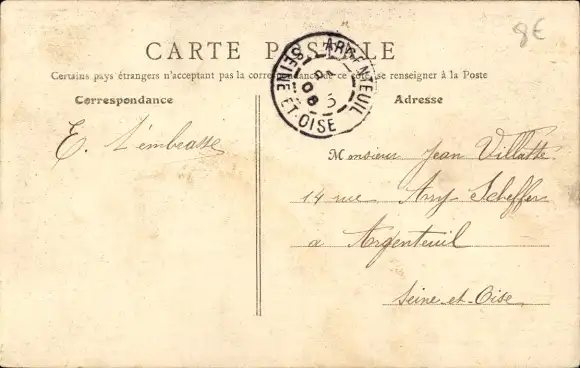 8€
CARTE POSTALE
Certains pays étrangers n'acceptant pas la correspondance de ce côté, se renseigner à la Poste
ARGENTEUIL
SEINE ET OISE
06
Correspondance
Adresse
E. t'embrasse
Monsieur Jean Villatte
14 rue Ary Scheffer
a Argenteuil
Seine-et-Oise